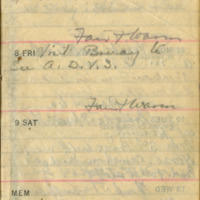 Fair & Warm
8 FRI Visit Binay to
see A. D. V. S.
Fair & Warm
9 SAT
MEM